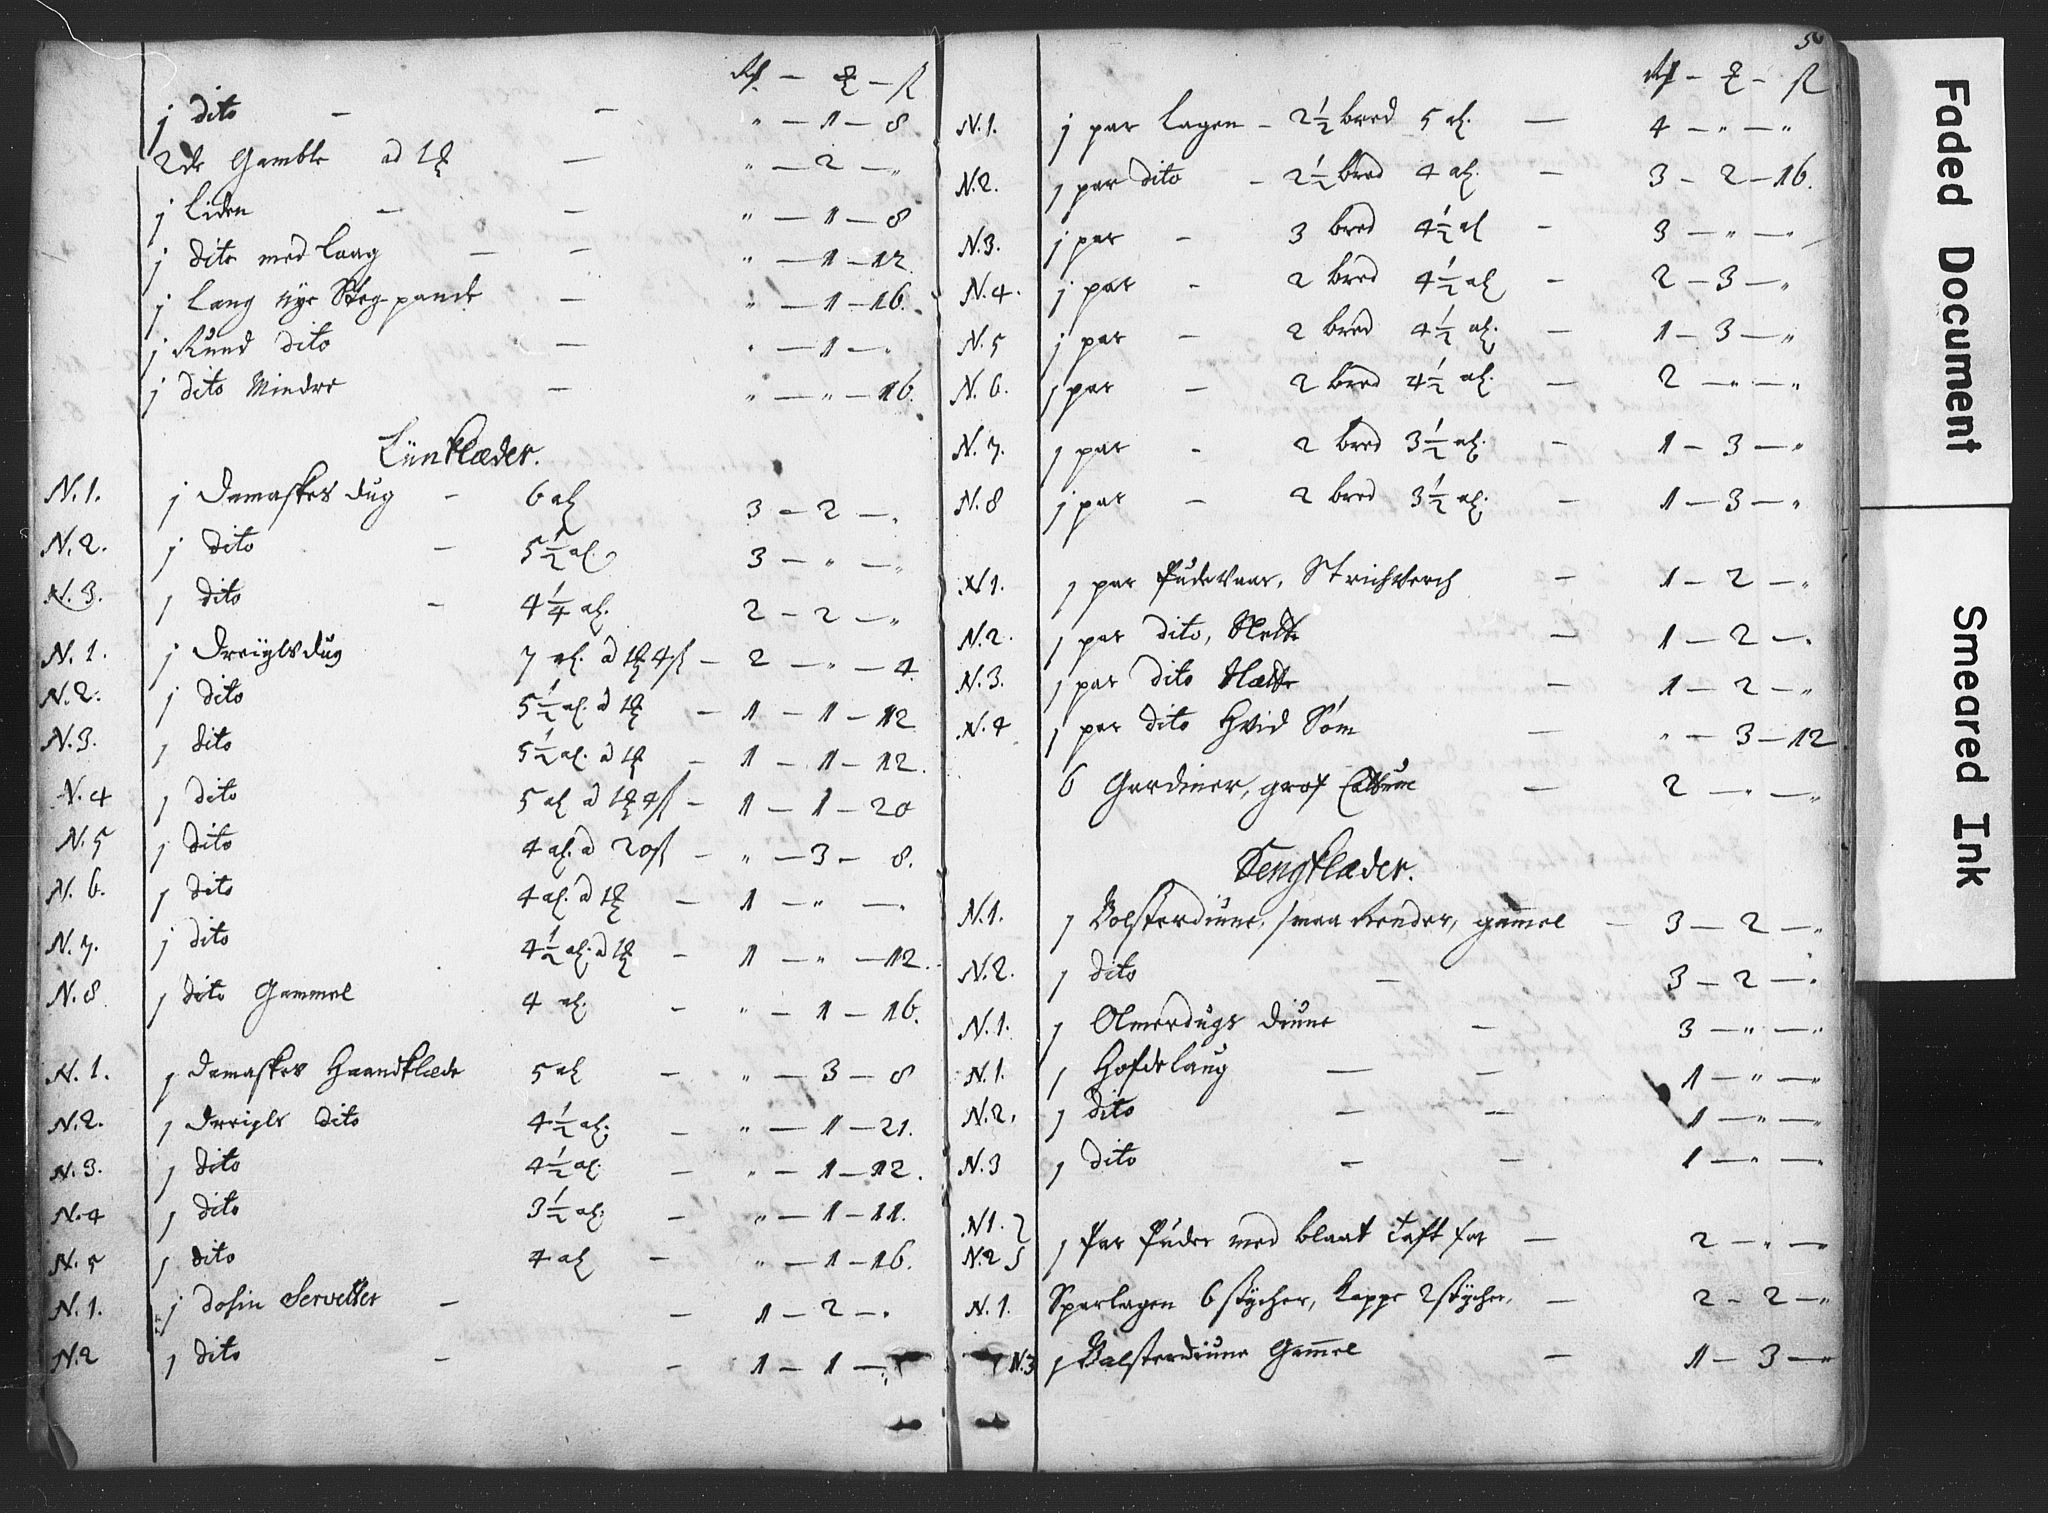 j dito — — " — 1 — 8
2de Gamble ad 1 — " — 2 — "
j Liden — — " — 1 — 8
j dito med Laag — — " — 1 — 12
j Lang nye Steg-pande — " — 1 — 16.
j Rund dito — " — 1 — "
j dito Mindre — " — " — 16.
Liinklæder.
N. 1. j Damaskes dug — 6 al 3 — 2 — "
N. 2. j dito — 5½ al. 3 — " — "
N. 3. j dito — 4¼ al. 2 — 2 — "
N. 1. j Dreiyls dug 7 al. a 1 4 ß — 2 — " — 4
N. 2. j dito 5½ al. a 1 — 1 — 1 — 12
N. 3. j dito 5½ al. a 1 — 1 — 1 — 12.
N. 4 j dito 5 al a 1 4 ß — 1 — 1 — 20
N. 5 j dito 4 al. a 20 ß — " — 3 — 8.
N. 6. j dito 4 al. a 1 — 1 — " — "
N. 7. j dito 4½ al. a 1 — 1 — " — 12.
N. 8 j dito Gammel 4 al. — " — 1 — 16.
N. 1. j Damaskes Haandklæde 5 al — " — 3 — 8
N. 2. j Dreigls dito 4½ al. — " — 1 — 21.
N. 3. j dito 4½ al. — " — 1 — 12.
N. 4 j dito 3½ al. — " — 1 — 11.
N. 5 j dito 4 al — " — 1 — 16.
N. 1. j dosin Servetter — — 1 — 2 — "
N. 2 j dito — — 1 — 1 — "
5
N. 1. j par Lagen — 2½ bred 5 al. — 4 — " — "
N. 2. j par dito — 2½ bred 4 al. — 3 — 2 — 16.
N. 3. j par — 3 bred 4½ al — 3 — " — "
N. 4. j par — 2 bred 4½ al — 2 — 3 — "
N. 5 j par — 2 bred 4½ al. — 1 — 3 — "
N. 6. j par — 2 bred 4½ al. — 2 — " — "
N. 7. j par — 2 bred 3½ al. — 1 — 3 — "
N. 8 j par — 2 bred 3½ al. — 1 — 3 — "
N 1. j par Pudevaar, Strichverch — 1 — 2 — "
N. 2. j par dito, Slette — 1 — 2 — "
N. 3. j par dito Slette — 1 — 2 — "
N. 4 j par dito Hvid Søm — " — 3 — 12
6 Gardiner, grof Cattune — 2 — " — "
Sengklæder.
N. 1. j Bolsterdiune, smaa Render, gamel — 3 — 2 — "
N. 2. j dito — 3 — 2 — "
N. 1. j Olmerdugs Diune — 3 — " — "
N. 1. j Hofdelaug — — 1 — " — "
N. 2. j dito — — 1 — " — "
N. 3 j dito — — 1 — " — "
N 1.
N. 2 j Par Puder med blaat Taft for — 2 — " — "
N. 1. Sparlagen 6 stycher, Kappe 2 stycher, — 2 — 2 — "
N. 3 j Bolsterdiune Gamel — 1 — 3 — "
Faded Document
Smeared Ink